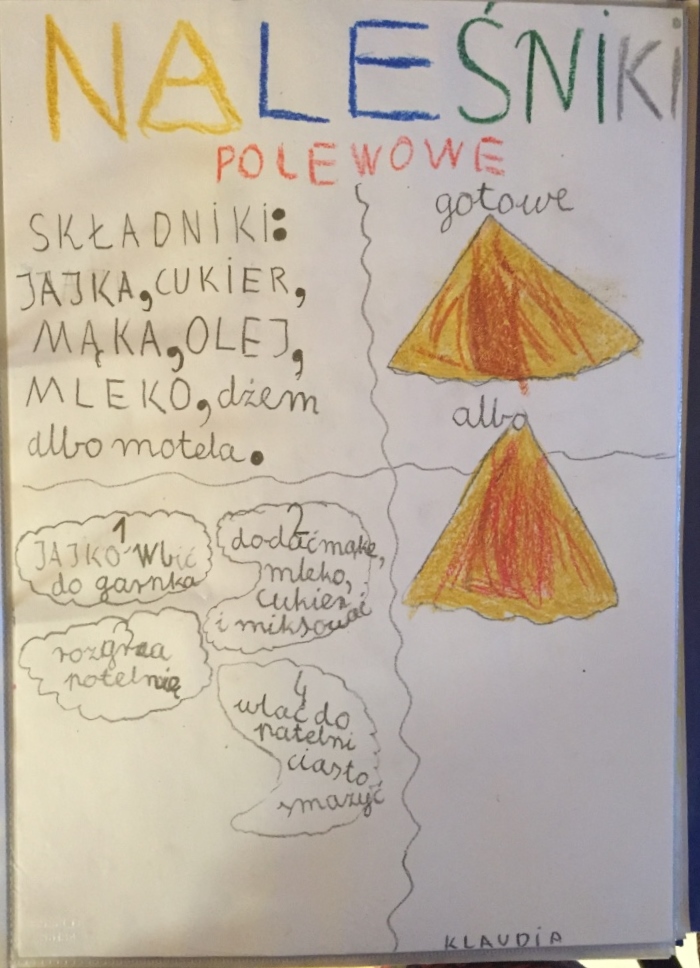 NALEŚNIKI
POLEWOWE
SKŁADNIKI:
JAJKA, CUKIER,
MĄKA, OLEJ,
MLEKO, dżem
albo motela.
gotowe
albo
1
JAJKO wbić
do garnka
2
dodać mąkę,
mleko,
cukier
i miksować
3
rozgrza
potelnię
4
wlać do
patelni
ciasto
smażyć
KLAUDIA